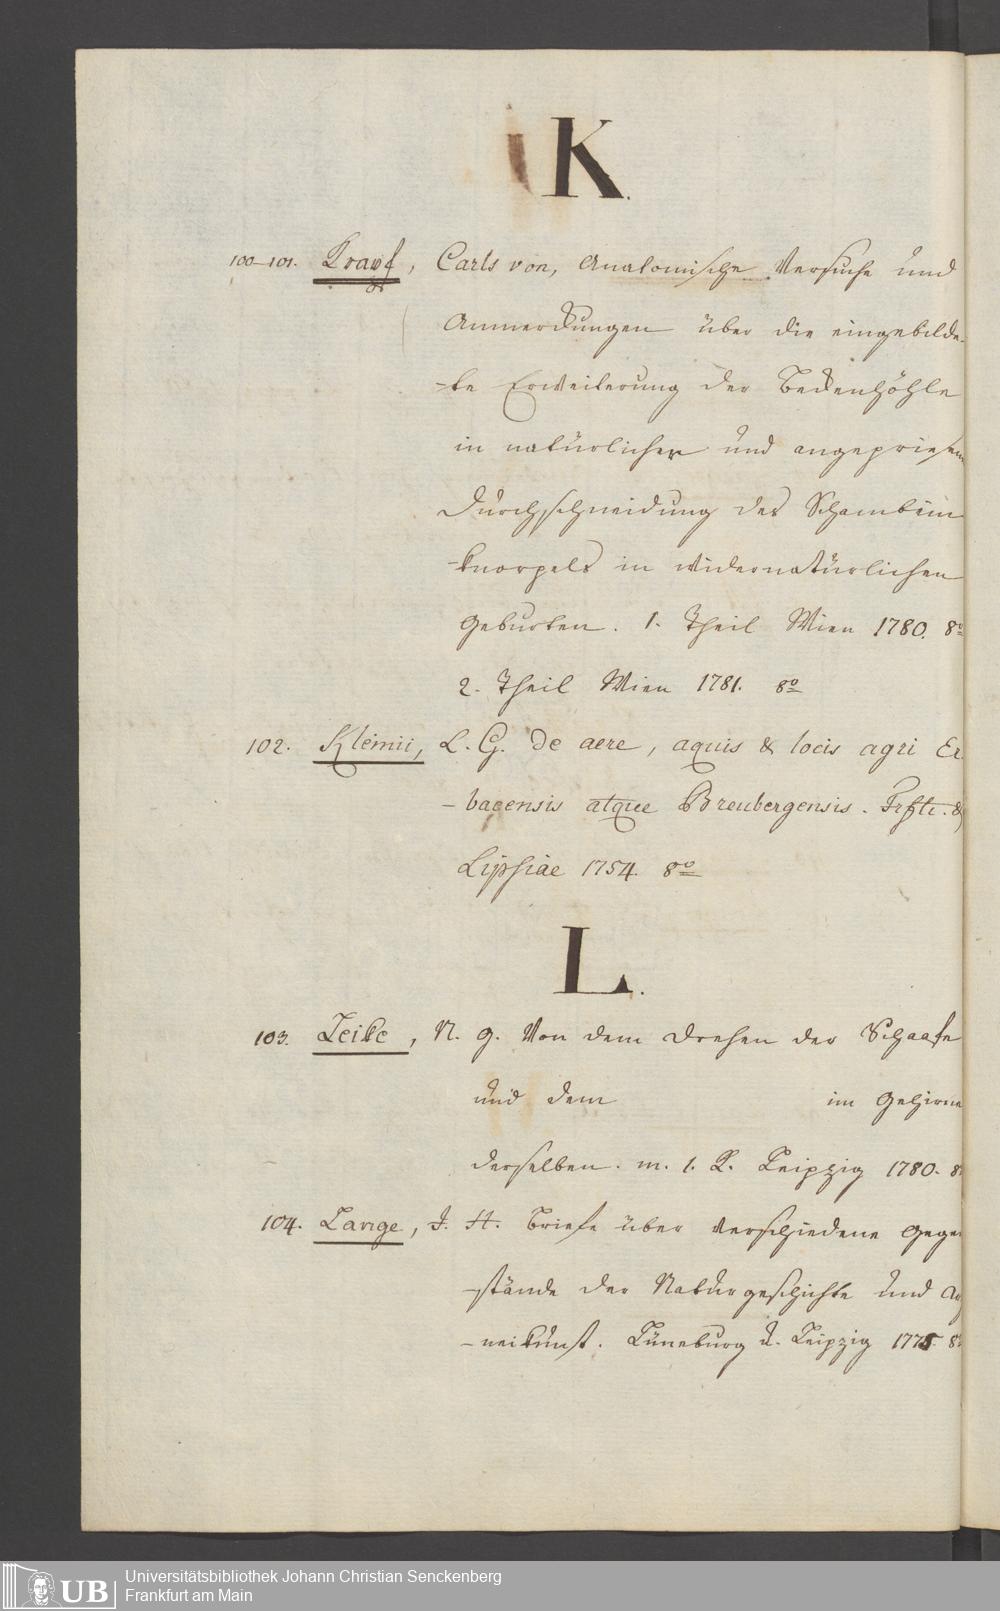 K.
100–101. Krapf, Carls von, Anatomische Versuche und
Anmerkungen über die eingebilde-
-te Erweiterung der Beckenhöhle
in natürlicher und angepriesen
Durchschneidung des Schambein
-knorpels in widernatürlichen
Geburten. 1. Theil Wien 1780. 8º
2. Theil Wien 1781. 8º
102. Klemii, L. G. de aere, aquis & locis agri Er
-bacensis atque Breubergensis. Frftr. &
Lipsiae 1754. 8º
L.
103. Leske, N. G. Von dem Drehen der Schaafe
und dem im Gehirne
derselben. m. 1. K. Leipzig 1780. 8
104. Lange, J. H. Briefe über verschiedene Gegen
-stände der Naturgeschichte und Arz
-neikunst. Lüneburg u. Leipzig 1775. 8º
UB
Universitätsbibliothek Johann Christian Senckenberg
Frankfurt am Main